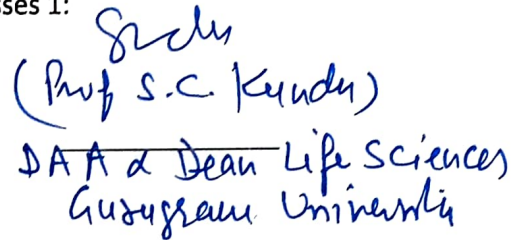 sses 1:
(Prof S.C. Kundu)
DAA & Dean Life Sciences
Gurugram University